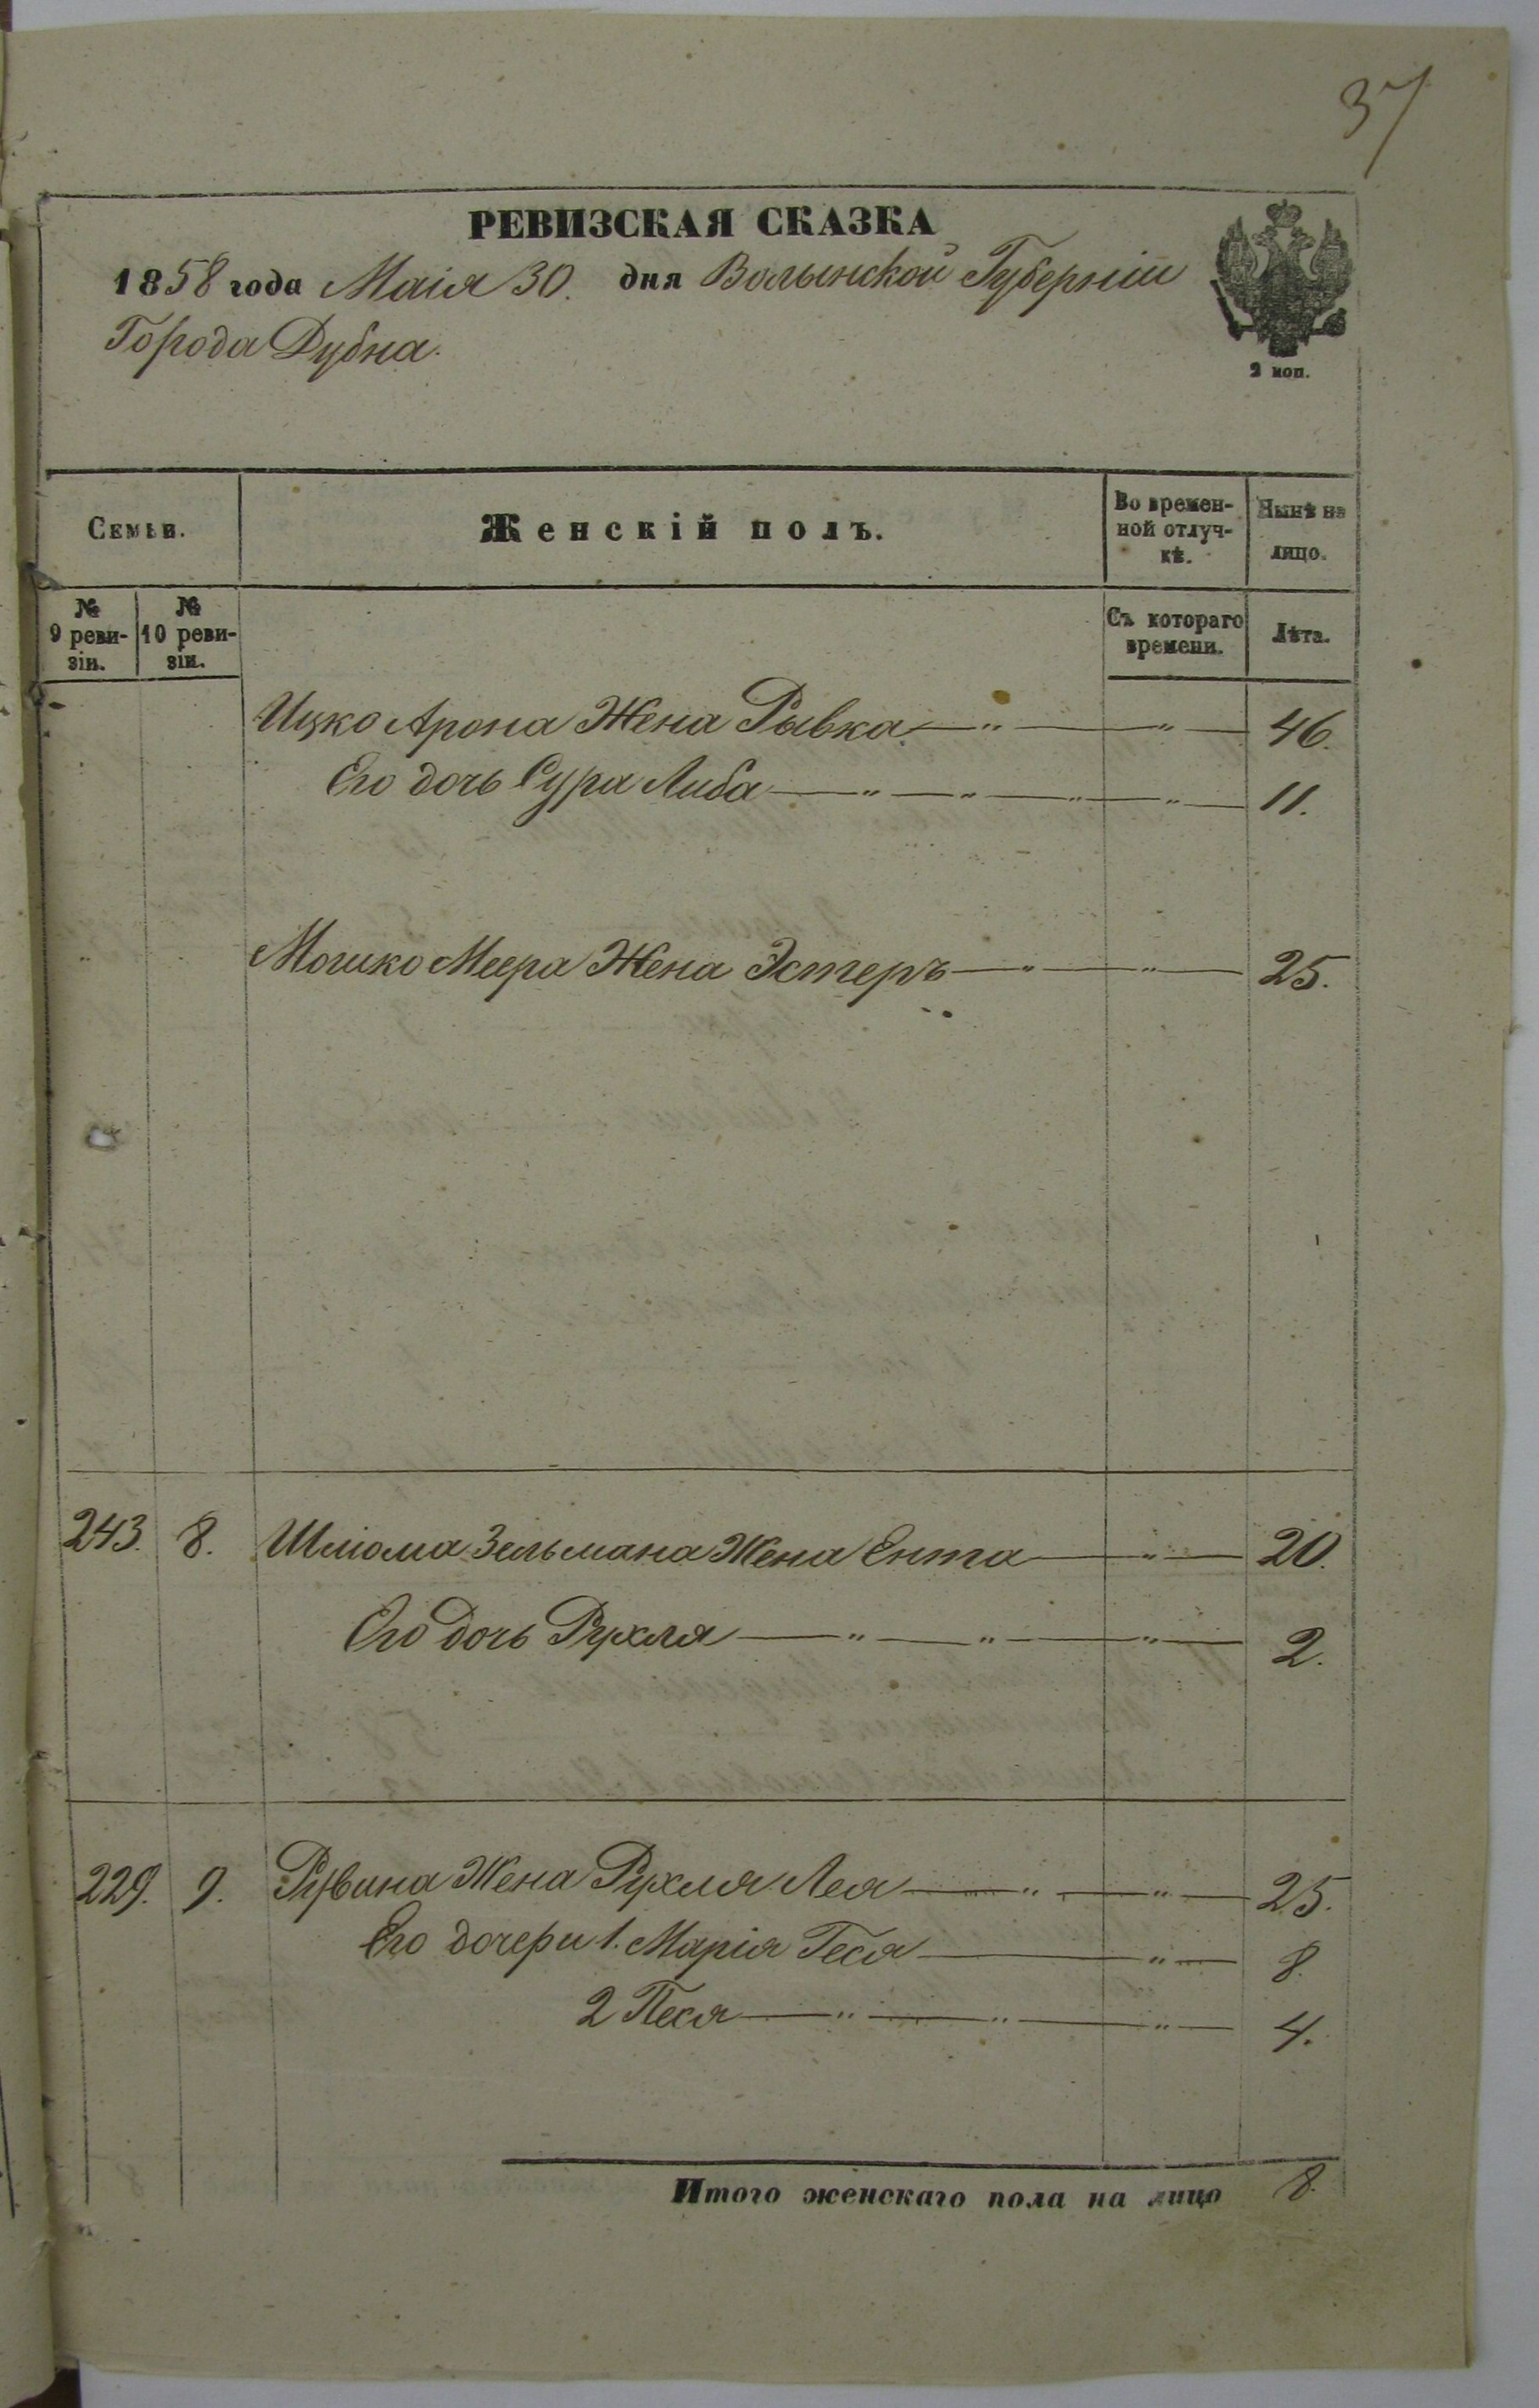 37
РЕВИЗСКАЯ СКАЗКА
1858 года Маія 30. дня Волынской Губерніи
Города Дубна.
2 коп.
Семьи.
Женскій полъ.
Во времен-
ной отлуч-
кѣ.
Нынѣ на
лицо.
№
9 реви-
зіи.
№
10 реви-
зіи.
Съ котораго
времени.
Лѣта.
Ицко Арона Жена Рывка — „ — „ — 46.
Его дочь Сура Либа — „ — „ — „ — „ — 11.
Мошко Меера Жена Эстеръ — „ — „ — 25.
243. 8. Шліома Зельмана Жена Ента — „ — 20.
Его дочь Рухля — „ — „ — „ — 2.
229. 9. Рувина Жена Рухля Лея — „ — „ — 25.
Его дочери 1. Марія Геся — „ — 8.
2 Песя — „ — „ — „ — 4.
Итого женскаго пола на лицо 8.